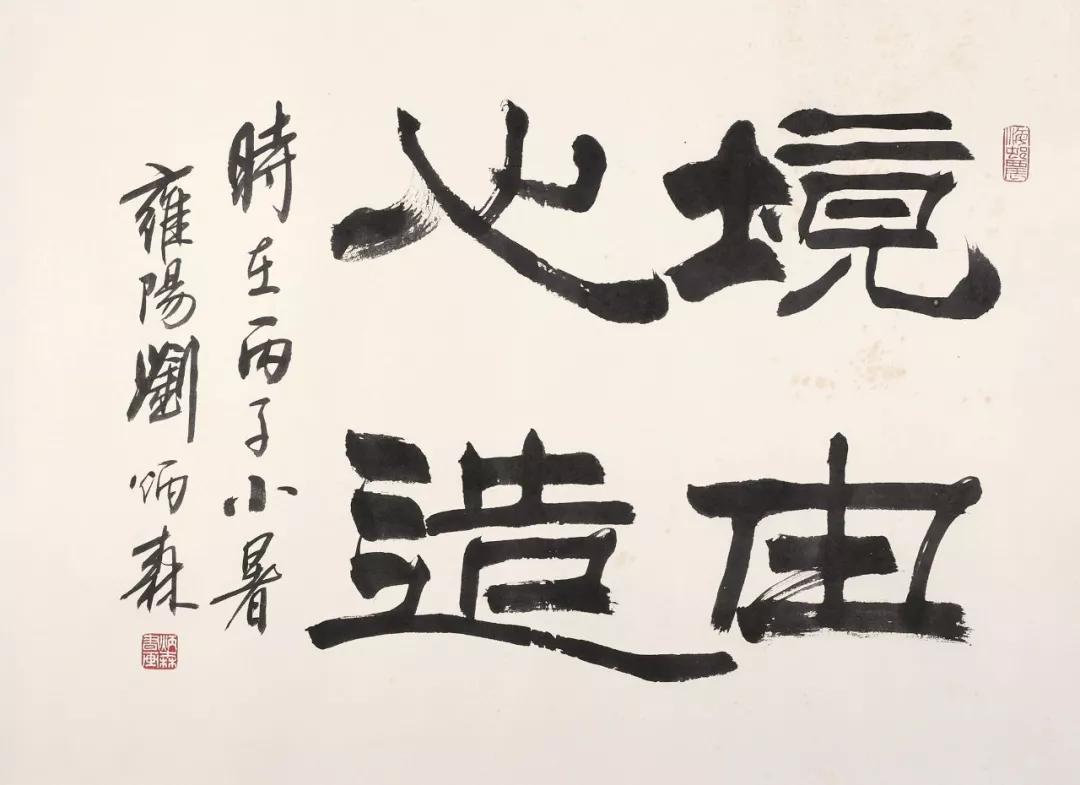 境由
心造
時在丙子小暑
雍陽劉炳森
炳森
書画